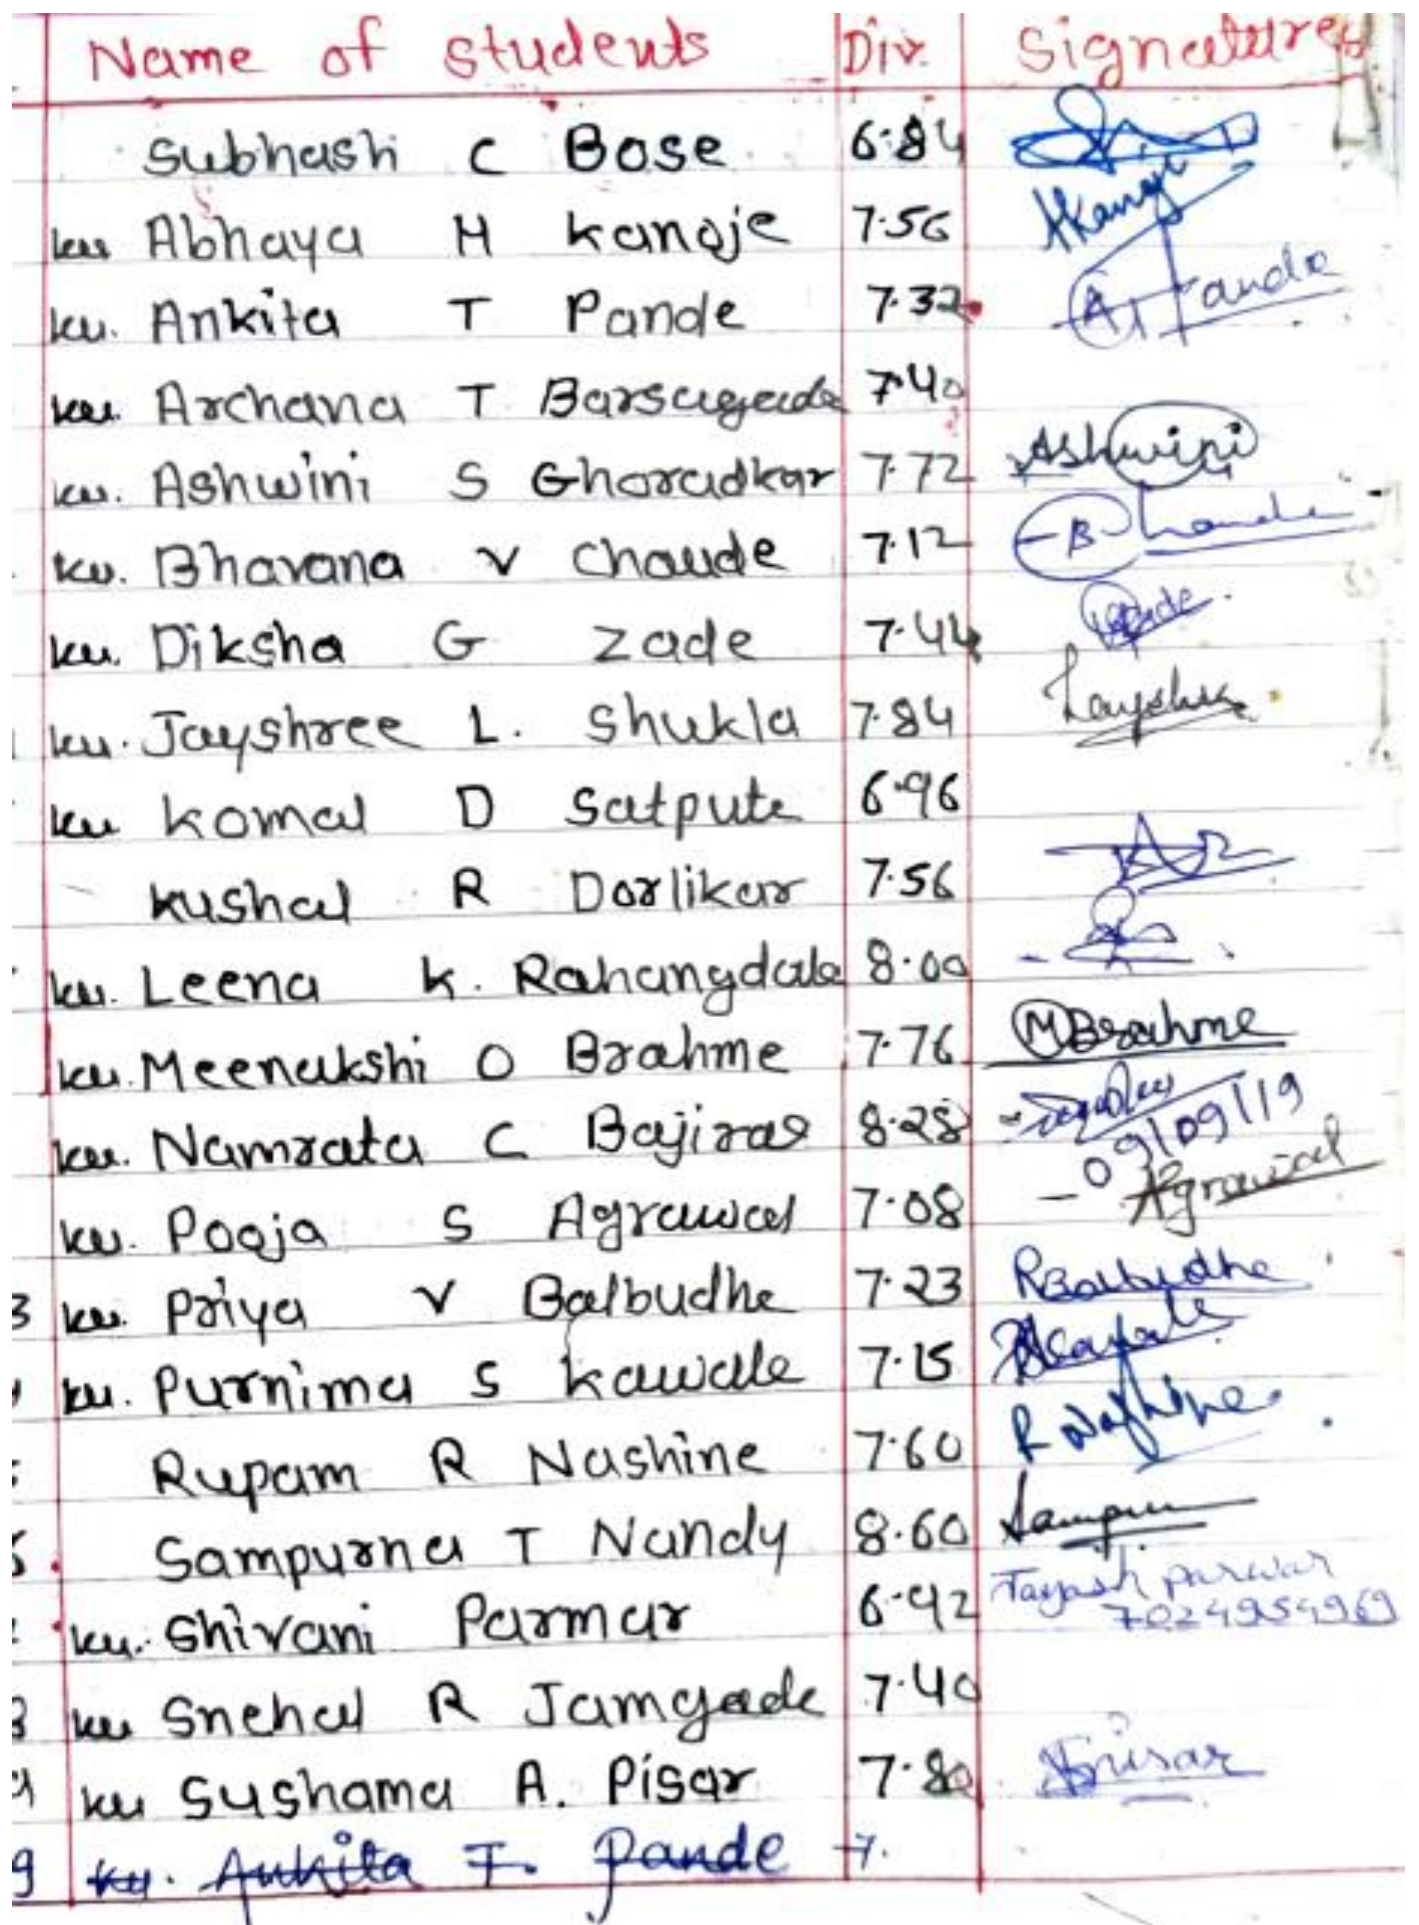 Name of students Div. Signatures
Subhash C Bose 6.84
ku Abhaya M Kanoje 7.56 AKanoje
ku. Ankita T Pande 7.32 A Pande
ku. Archana T Barsagade 7.40
ku. Ashwini S Ghoradkar 7.72 Ashwini
ku. Bhavana V Chaude 7.12
ku. Diksha G Zade 7.44
ku. Jayshree L. Shukla 7.84
ku Komal D Satpute 6.96
Kushal R Dorlikar 7.56
ku. Leena K. Rahangdale 8.00
ku. Meenakshi O Brahme 7.76 MBrahme
ku. Namrata C Bajirao 8.28
09/09/19
ku. Pooja S Agrawal 7.08 Agrawal
3 ku. Priya V Balbudhe 7.23 PBalbudhe
ku. Purnima S Kawale 7.15
Rupam R Nashine 7.60 R Nashine
Sampurna T Nandy 8.60
ku. Shivani Parmar 6.92
7024954969
ku Snehal R Jamgade 7.40
ku Sushama A. Pisar 7.80 Spisar
9 ku. Ankita T. Pande 7.